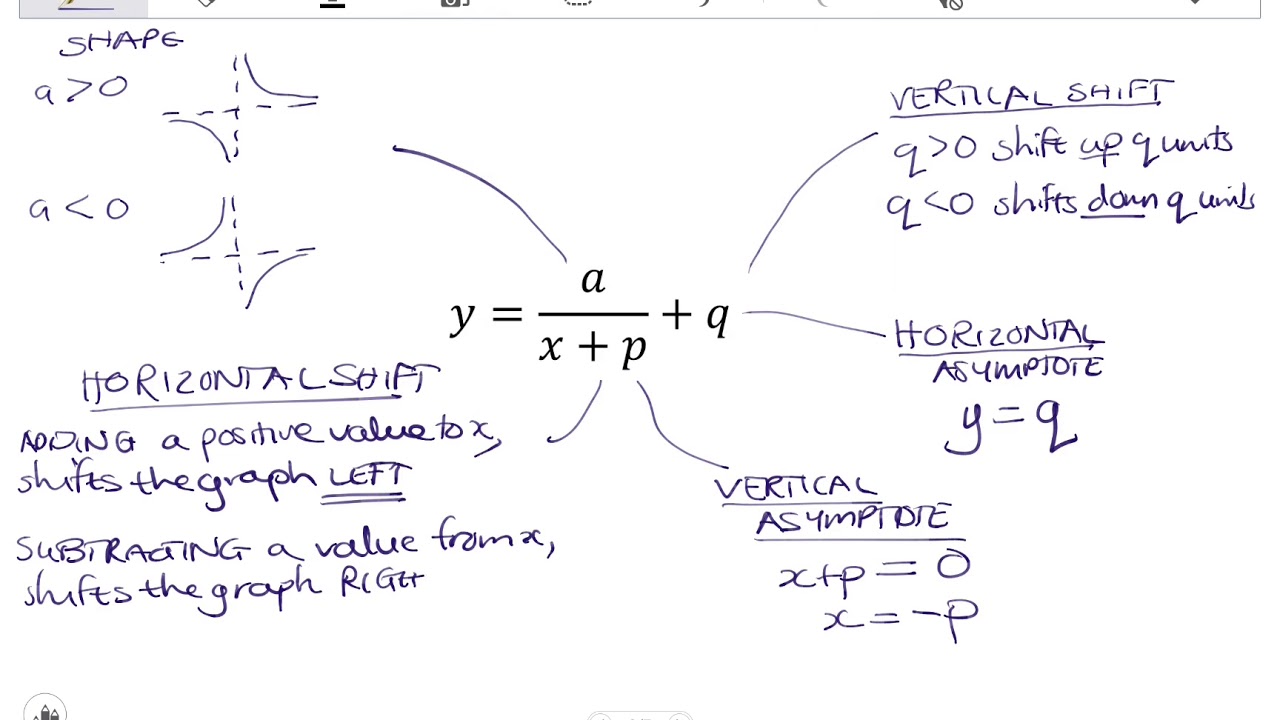 SHAPE
a > 0
a < 0
y = a/(x + p) + q
VERTICAL SHIFT
q>0 shift up q units
q<0 shifts down q units
HORIZONTAL
ASYMPTOTE
y = q
HORIZONTAL SHIFT
ADDING a positive value to x,
shifts the graph LEFT
SUBTRACTING a value from x,
shifts the graph RIGHT
VERTICAL
ASYMPTOTE
x+p = 0
x = -p